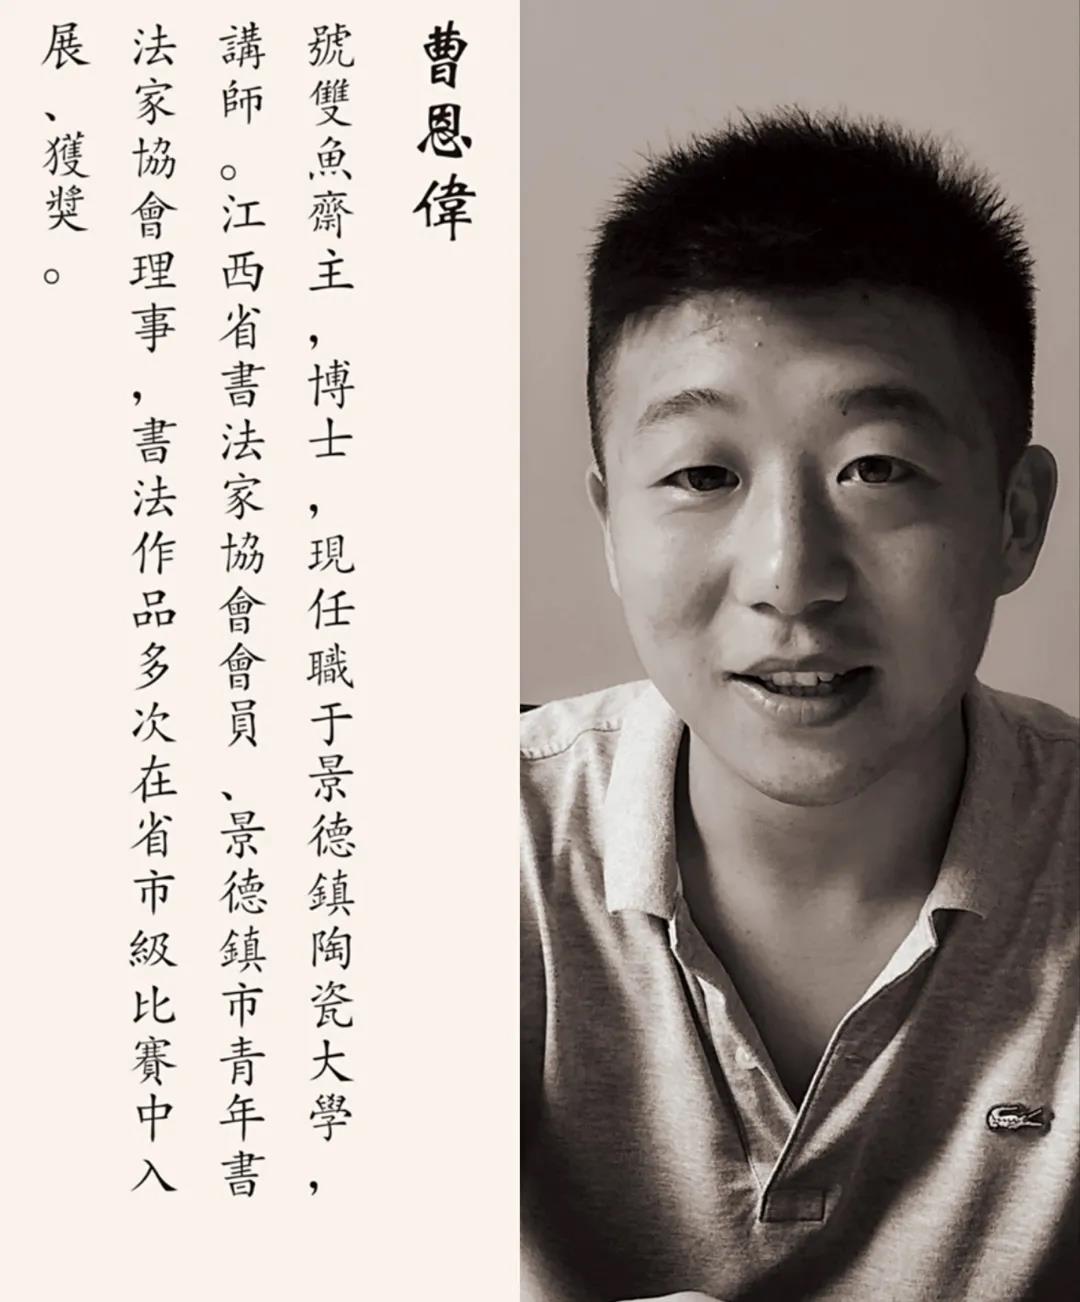 曹恩偉
號雙魚齋主，博士，現任職于景德鎮陶瓷大學，
講師。江西省書法家協會會員、景德鎮市青年書
法家協會理事，書法作品多次在省市級比賽中入
展、獲獎。